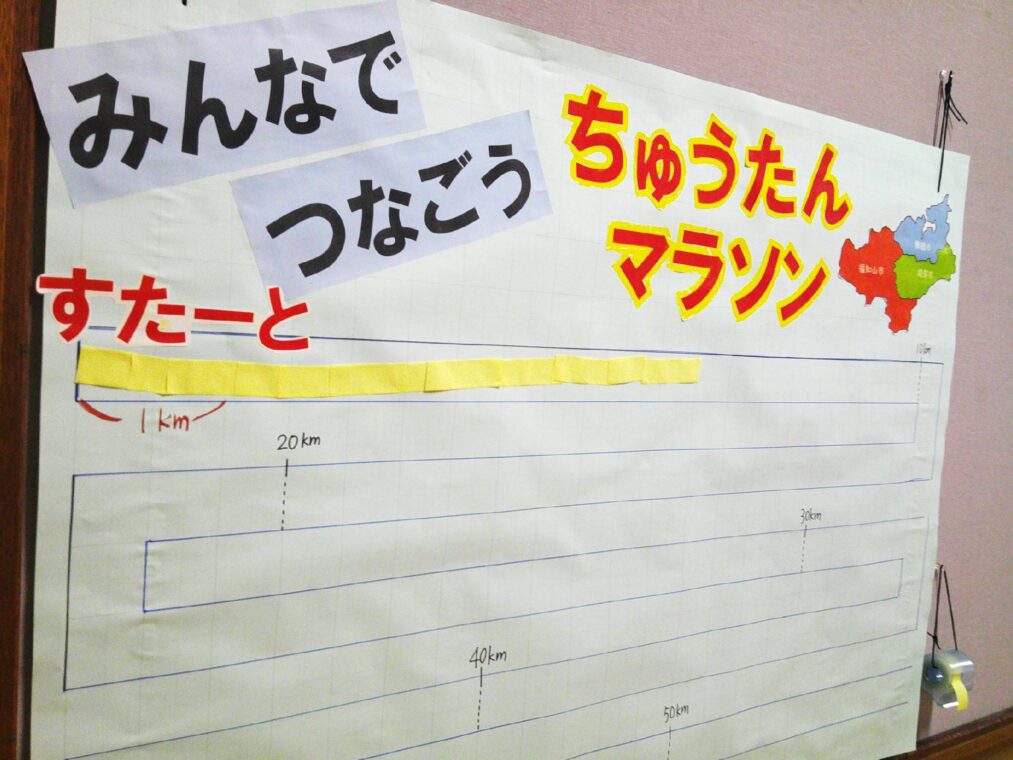 みんなで
つなごう
ちゅうたん
マラソン
福知山市
すたーと
10km
1km
20km
30km
40km
50km